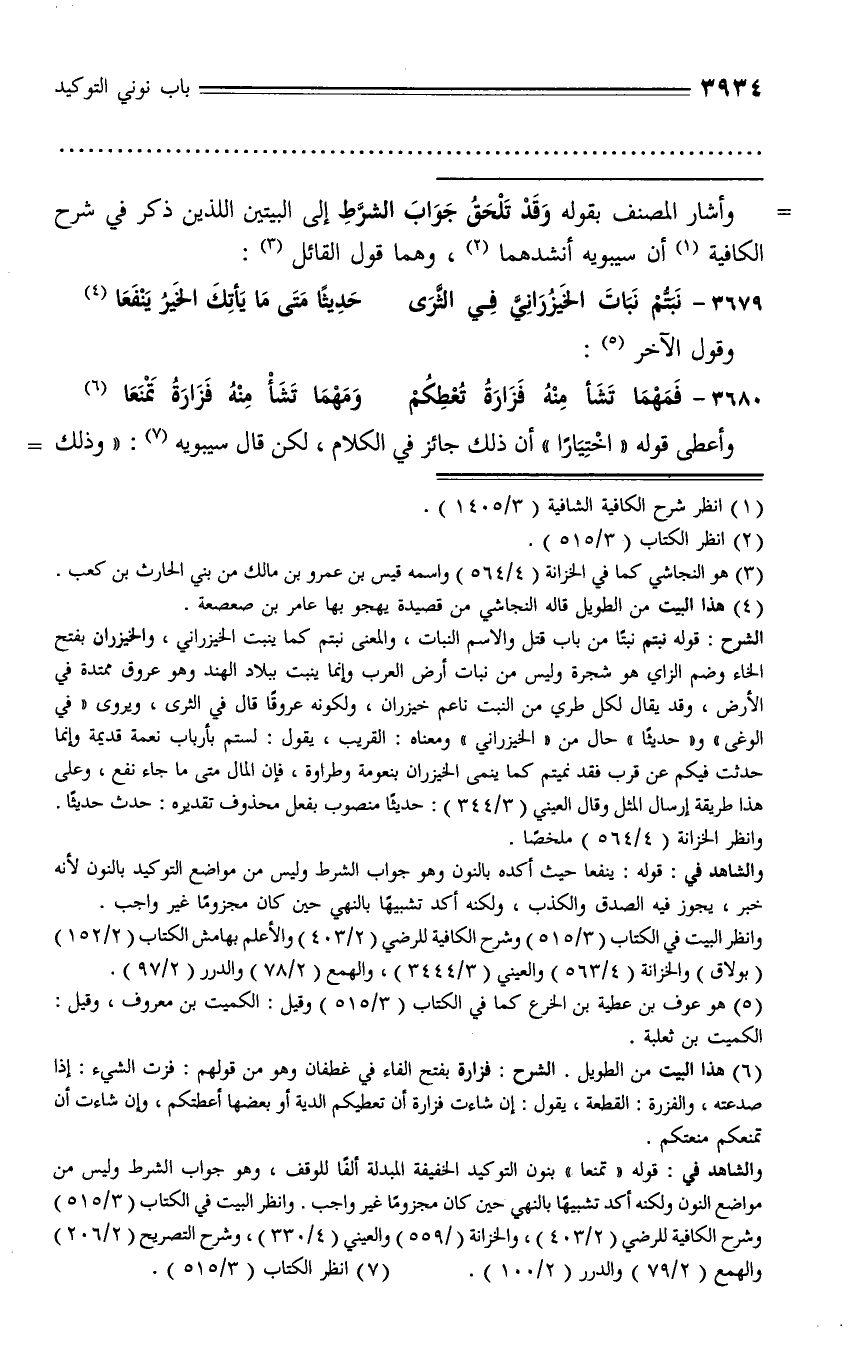 ٣٩٣٤ باب نوني التوكيد
................................................................................
= وأشار المصنف بقوله وَقَدْ تَلْحَقُ جَوَابَ الشرَّطِ إلى البيتين اللذين ذكر في شرح
الكافية (١) أن سيبويه أنشدهما (٢) ، وهما قول القائل (٣) :
٣٦٧٩ - نَبَتُّمْ نَبَاتَ الخَيْزُرَانِيَّ فِـي الثَّرَى حَدِيثًا مَتَى مَا يَأتِكَ الخَيرُ يَنْفَعَا (٤)
وقول الآخر (٥) :
٣٦٨٠ - فَمَهْمَا تَشَأ مِنْهُ فَزَارَةُ تُعْطِكُمْ وَمَهْمَا تَشَأْ مِنْهُ فَزَارَةُ تَمْنَعَا (٦)
وأعطى قوله « اخْتِيَارًا » أن ذلك جائز في الكلام ، لكن قال سيبويه (٧) : « وذلك =
(١) انظر شرح الكافية الشافية ( ١٤٠٥/٣ ) .
(٢) انظر الكتاب ( ٥١٥/٣ ) .
(٣) هو النجاشي كما في الخزانة ( ٥٦٤/٤ ) واسمه قيس بن عمرو بن مالك من بني الحارث بن كعب .
(٤) هذا البيت من الطويل قاله النجاشي من قصيدة يهجو بها عامر بن صعصعة .
الشرح : قوله نبتم نبتًا من باب قتل والاسم النبات ، والمعنى نبتم كما ينبت الخيزراني ، والخيزران بفتح
الخاء وضم الزاي هو شجرة وليس من نبات أرض العرب وإنما ينبت ببلاد الهند وهو عروق ممتدة في
الأرض ، وقد يقال لكل طري من النبت ناعم خيزران ، ولكونه عروقًا قال في الثرى ، ويروى « في
الوغى » و« حديثًا » حال من « الخيزراني » ومعناه : القريب ، يقول : لستم بأرباب نعمة قديمة وإنما
حدثت فيكم عن قرب فقد نميتم كما ينمى الخيزران بنعومة وطراوة ، فإن المال متى ما جاء نفع ، وعلى
هذا طريقة إرسال المثل وقال العيني ( ٣٤٤/٣ ) : حديثًا منصوب بفعل محذوف تقديره : حدث حديثًا .
وانظر الخزانة ( ٥٦٤/٤ ) ملخصًا .
والشاهد في : قوله : ينفعا حيث أكده بالنون وهو جواب الشرط وليس من مواضع التوكيد بالنون لأنه
خبر ، يجوز فيه الصدق والكذب ، ولكنه أكد تشبيهًا بالنهي حين كان مجزومًا غير واجب .
وانظر البيت في الكتاب ( ٥١٥/٣ ) وشرح الكافية للرضي ( ٤٠٣/٢ ) والأعلم بهامش الكتاب ( ١٥٢/٢ )
( بولاق ) والخزانة ( ٥٦٣/٤ ) والعيني ( ٣٤٤٤/٣ ) ، والهمع ( ٧٨/٢ ) والدرر ( ٩٧/٢ ) .
(٥) هو عوف بن عطية بن الخرع كما في الكتاب ( ٥١٥/٣ ) وقيل : الكميت بن معروف ، وقيل :
الكميت بن ثعلبة .
(٦) هذا البيت من الطويل . الشرح : فزارة بفتح الفاء في غطفان وهو من قولهم : فزت الشيء : إذا
صدعته ، والفزرة : القطعة ، يقول : إن شاءت فزارة أن تعطيكم الدية أو بعضها أعطتكم ، وإن شاءت أن
تمنعكم منعتكم .
والشاهد في : قوله « تمنعا » بنون التوكيد الخفيفة المبدلة ألفًا للوقف ، وهو جواب الشرط وليس من
مواضع النون ولكنه أكد تشبيهًا بالنهي حين كان مجزومًا غير واجب . وانظر البيت في الكتاب ( ٥١٥/٣ )
وشرح الكافية للرضي ( ٤٠٣/٢ ) ، والخزانة ( /٥٥٩ ) والعيني ( ٣٣٠/٤ ) ، وشرح التصريح ( ٢٠٦/٢ )
والهمع ( ٧٩/٢ ) والدرر ( ١٠٠/٢ ) . (٧) انظر الكتاب ( ٥١٥/٣ ) .